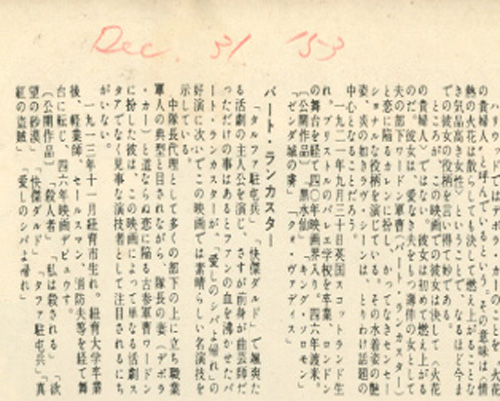 Dec. 31 '53
と呼んでいるという。その意味は「情
熱の火花は散らしても決して燃え上がることな
き気品高き女性」ということで、なるほど今ま
での彼女の役柄を言い得て妙である。
ところが、この映画での彼女は決して(火花
の貴婦人)ではない。彼女は初めて燃え上がる
のだ。彼女は、愛なき夫をもつ薄倖の女として
夫の部下ワードン軍曹(バート・ランカスター)
と恋に陥るカレンに扮し、かつてなきセンセー
ショナルな役柄を演じている。その水着姿の艶
姿、炎の如きラヴ・シーンは、とりわけ話題の
中心になることだろう。
一九二一年九月三十日英国スコットランド生
れ。ブリストルのバレエ学校を卒業、ロンドン
の舞台を経て、四〇年映画界入り。四六年渡米。
〔公開作品〕「黒水仙」「キング・ソロモン」
「ゼンダ城の虜」「クォ・ヴァディス」
バート・ランカスター
「タルファ駐屯兵」「快傑ダルド」で颯爽た
る活劇の主人公を演じ、さすが前身が曲芸師だ
っただけの事はあるとファンの血を沸かせたバ
ート・ランカスターが、「愛しのシバよ帰れ」の
好演に次いでこの映画では素晴らしい名演技を
示している。
中隊長代理として多くの部下の上に立ち職業
軍人の典型と目されながら、隊長の妻(デボラ
・カー)と道ならぬ恋に陥る古参軍曹ワードン
に扮した彼は、この映画によって単なる活劇ス
タアでなく見事な演技者として注目されるにち
がいない。
一九一三年十一月紐育市生れ。紐育大学卒業
後、軽業師、セールスマン、消防夫等を経て舞
台に転じ、四六年映画デビュウ。
〔公開作品〕「殺人者」「私は殺される」「欲
望の砂漠」「快傑ダルド」「タルファ駐屯兵」「真
紅の盗賊」「愛しのシバよ帰れ」